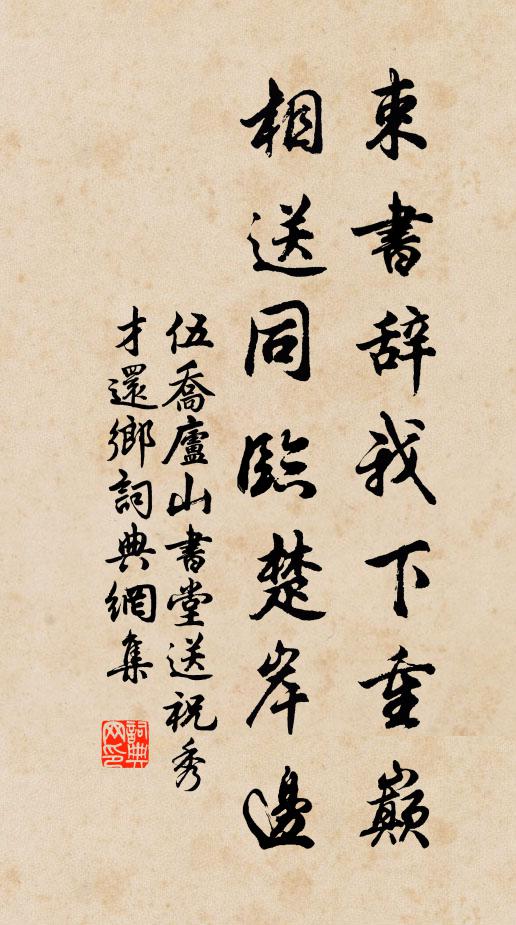 束書辞我下重巔
相送同臨楚岸邊
伍喬廬山書堂送祝秀
才還鄉詞典網集
詞典網印